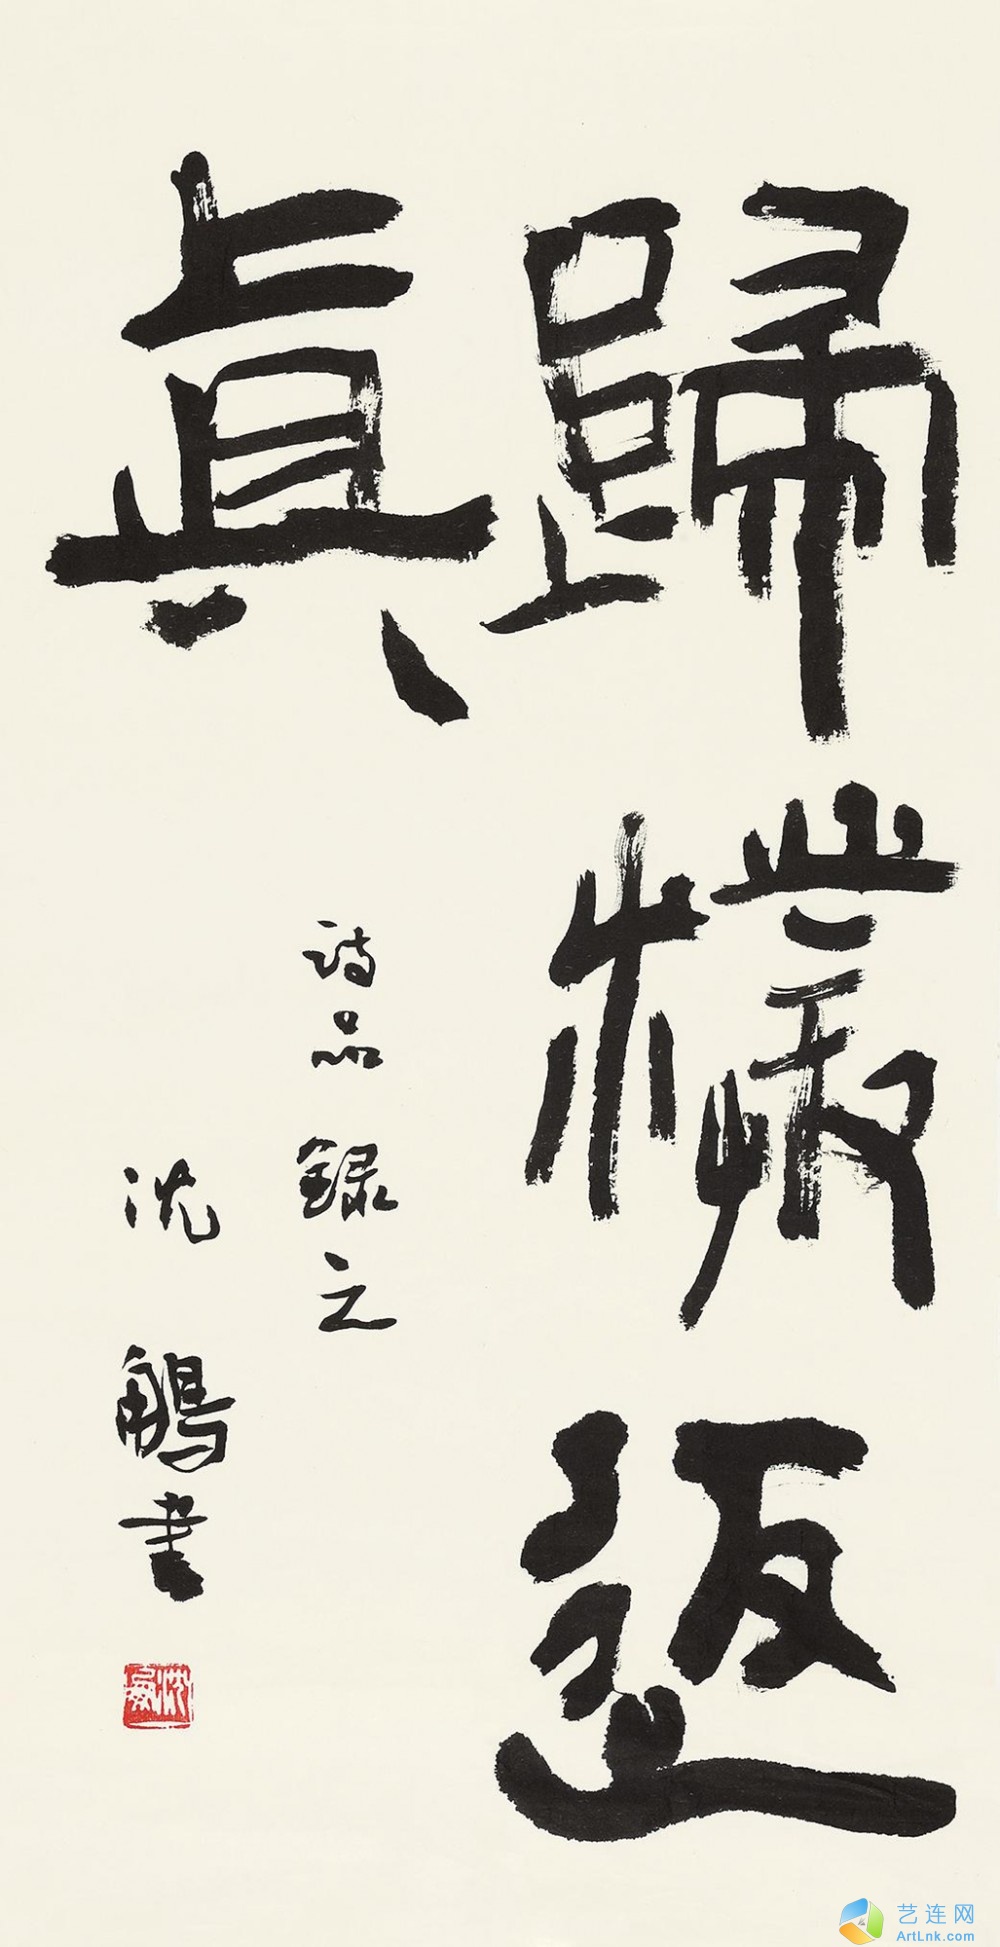 歸樸返
真
诗品録之
沈鵬書
沈鵬
艺连网
ArtLnk.com